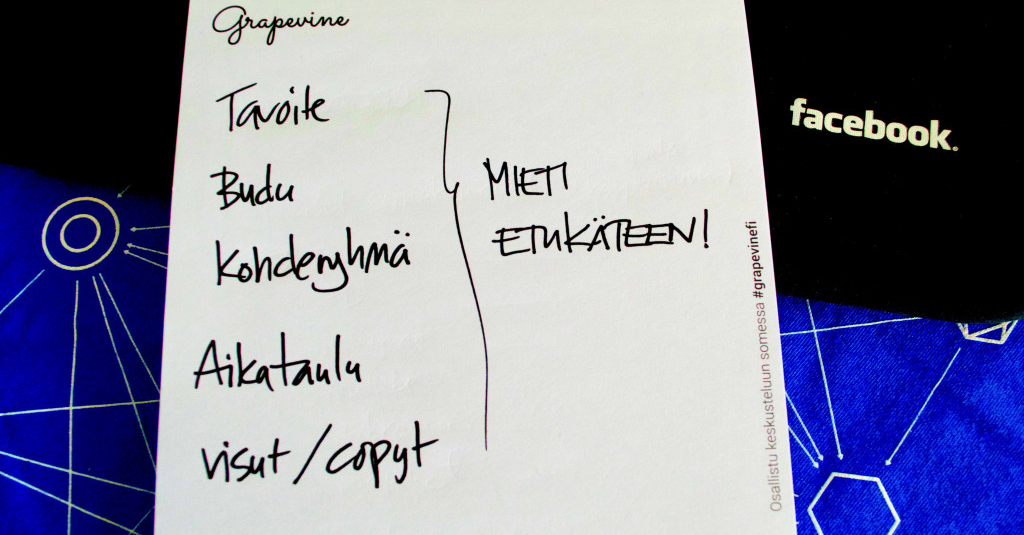 Grapevine
Tavoite
Budu
Kohderyhmä
Aikataulu
visut / copyt
MIETI
ETUKÄTEEN!
facebook.
Osallistu keskusteluun somessa #grapevinefi